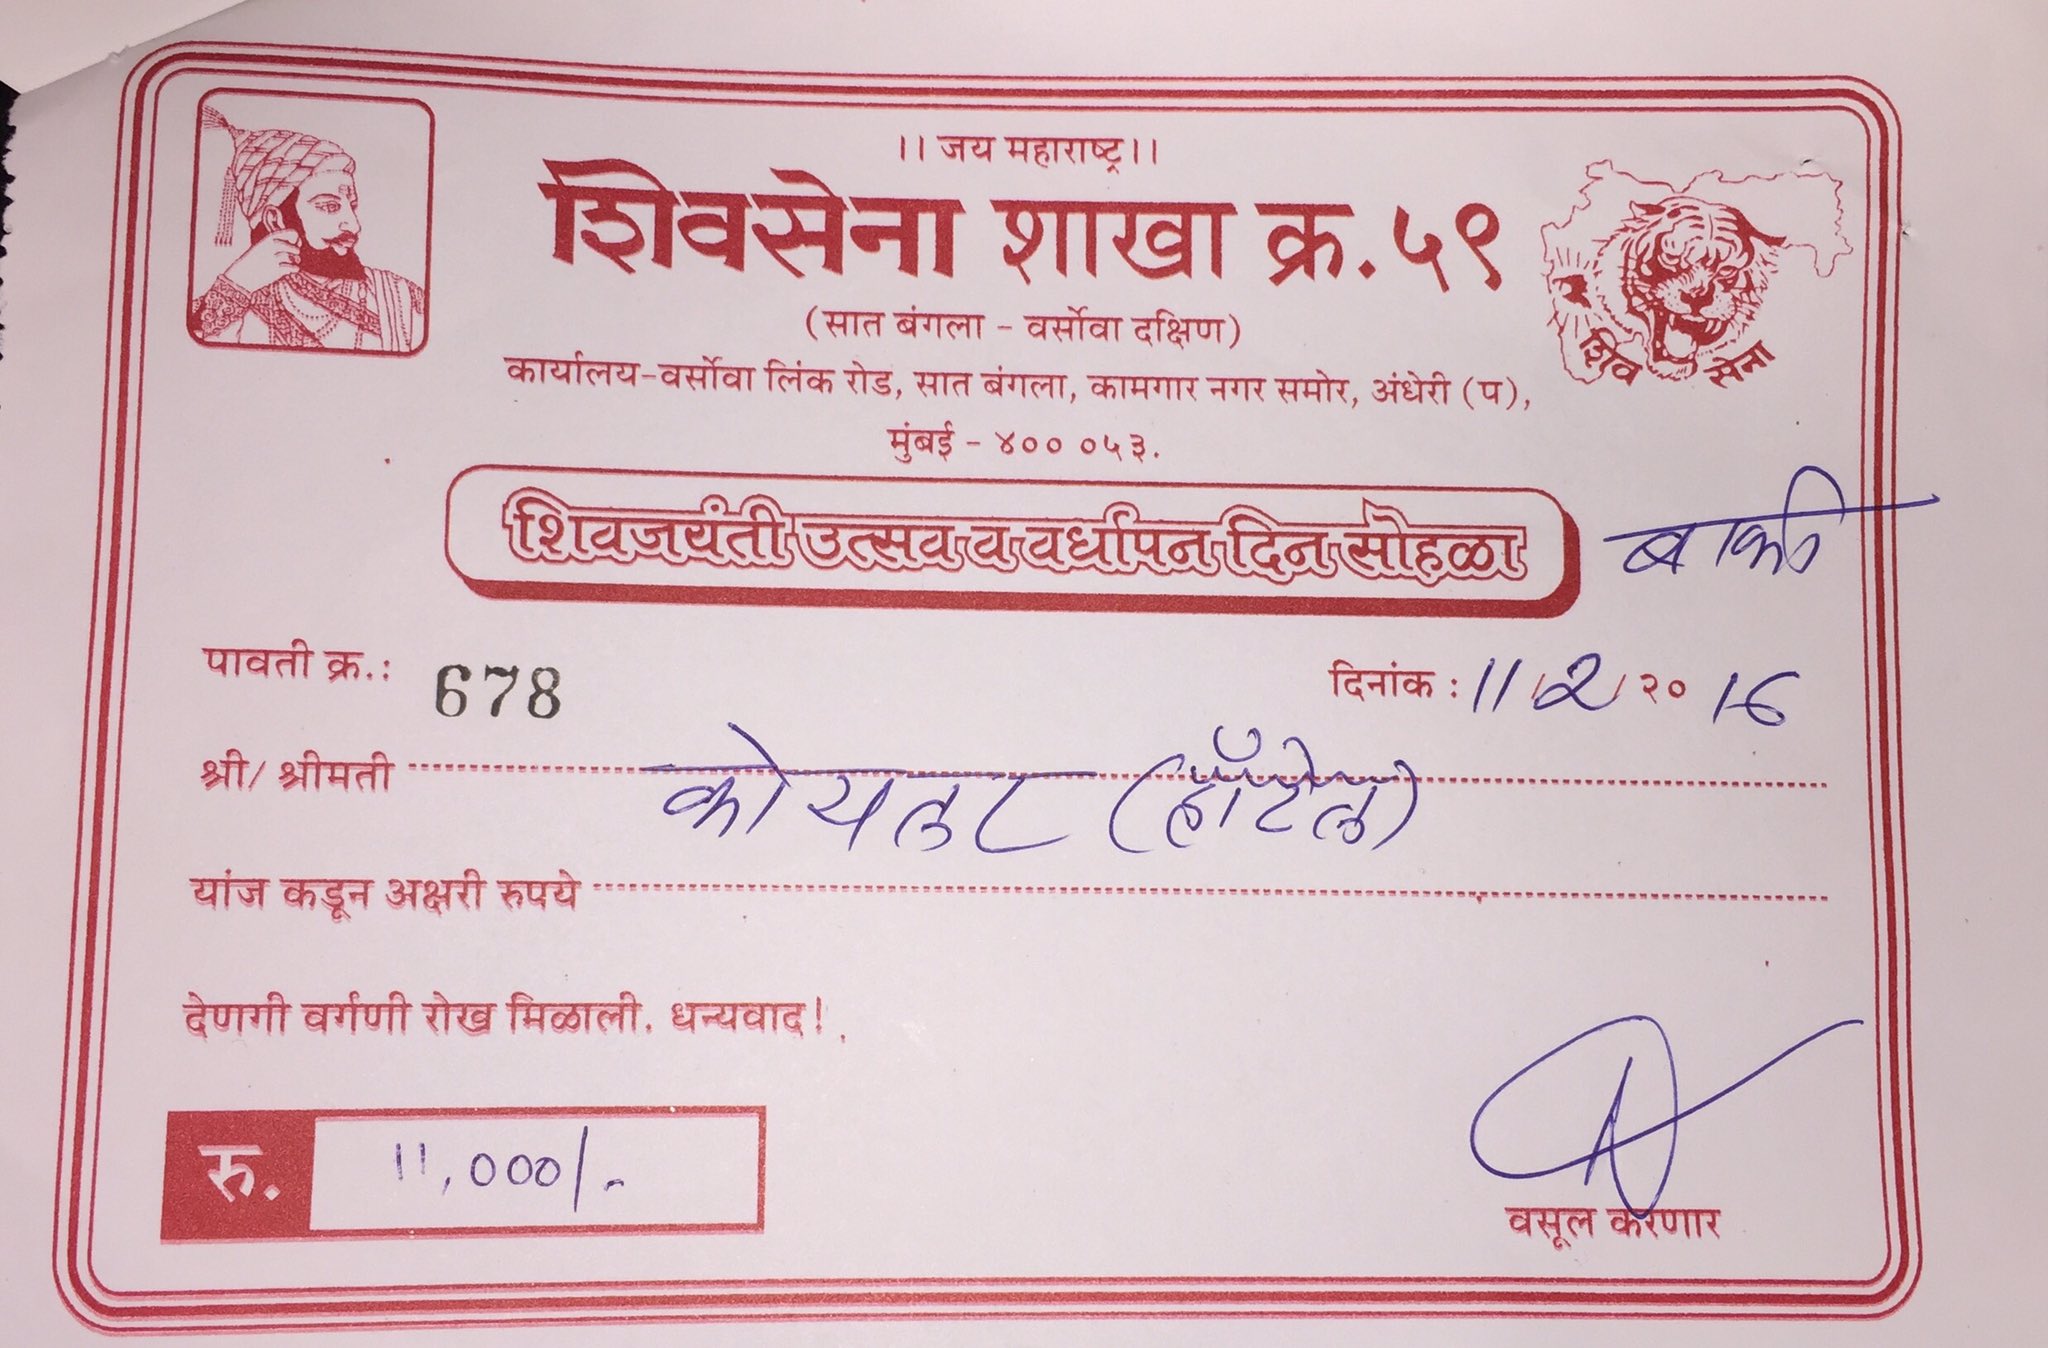 ।। जय महाराष्ट्र।।
शिवसेना शाखा क्र. ५९
शिव सेना
(सात बंगला - वर्सोवा दक्षिण)
कार्यालय-वर्सोवा लिंक रोड, सात बंगला, कामगार नगर समोर, अंधेरी (प),
मुंबई - ४०० ०५३.
शिवजयंती उत्सव व वर्धापन दिन सोहळा
बाकी
पावती क्र.: 678 दिनांक : 11/2/२० 16
श्री/ श्रीमती (हॉटेल)
यांज कडून अक्षरी रुपये
देणगी वर्गणी रोख मिळाली. धन्यवाद!
रु. 11,000/-
वसूल करणार